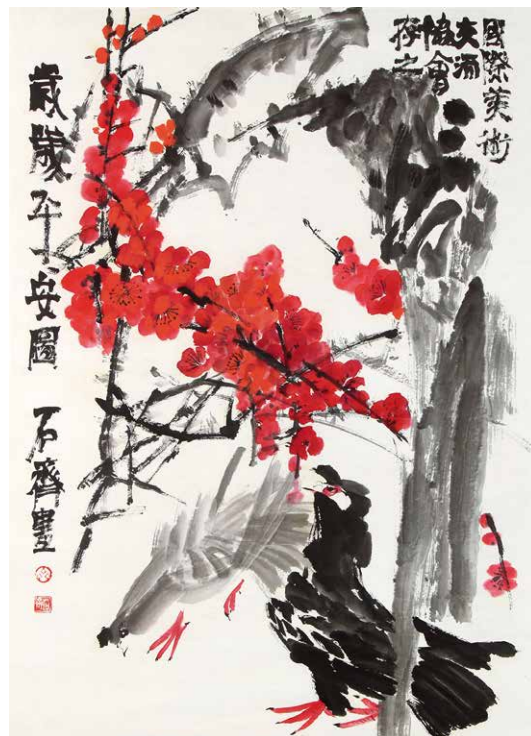 國際美術
交流
協會
存之
歲歲平安圖 石齊畫